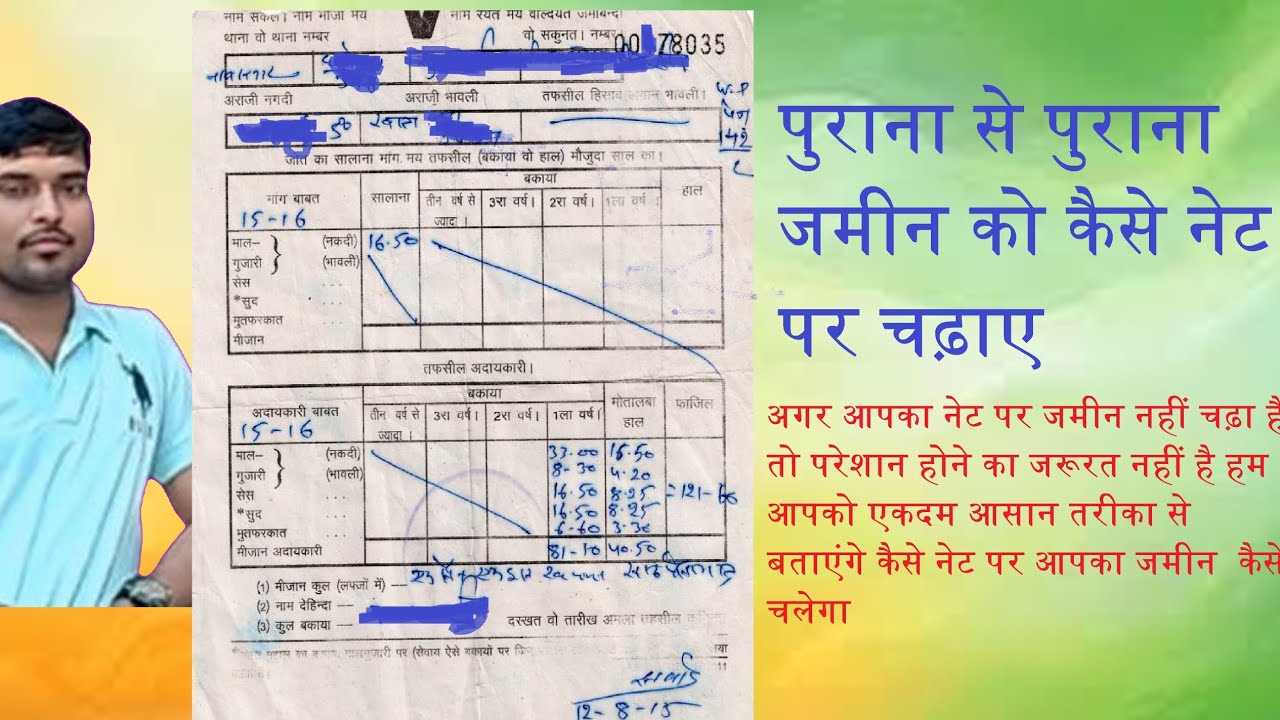 नाम सर्कल। नाम मौजा मय
नाम रैयत मय वल्दियत जमाबन्दी
थाना वो थाना नम्बर
वो सकुनत। नम्बर
78035
अराजी नगदी
अराजी भावली
तफसील हिसाब लगान भावली।
142
जोत का सालाना मांग मय तफसील (बकाया वो हाल) मौजुदा साल का।
मांग बाबत
सालाना
बकाया
हाल
तीन वर्ष से ज्यादा।
3रा वर्ष।
2रा वर्ष।
1ला वर्ष।
15-16
माल– (नकदी) 16.50
गुजारी (भावली)
सेस ...
*सुद ...
मुतफरकात ...
मीजान
तफसील अदायकारी।
अदायकारी बाबत
बकाया
मोतालबा हाल
फाजिल
तीन वर्ष से ज्यादा।
3रा वर्ष।
2रा वर्ष।
1ला वर्ष।
15-16
माल– (नकदी) 33.00
गुजारी (भावली) 8-30 4.20
सेस ... 16.50 8.25
*सुद ... 16.50 8.25
मुतफरकात ... 6-60 3.30
मीजान अदायकारी 81-10 40.50
(1) मीजान कुल (लफ्जों में) —
(2) नाम देहिन्दा —
(3) कुल बकाया —
दस्खत वो तारीख अमला तहशील
12-8-15
पुराना से पुराना
जमीन को कैसे नेट
पर चढ़ाए
अगर आपका नेट पर जमीन नहीं चढ़ा है
तो परेशान होने का जरूरत नहीं है हम
आपको एकदम आसान तरीका से
बताएंगे कैसे नेट पर आपका जमीन कैसे
चलेगा